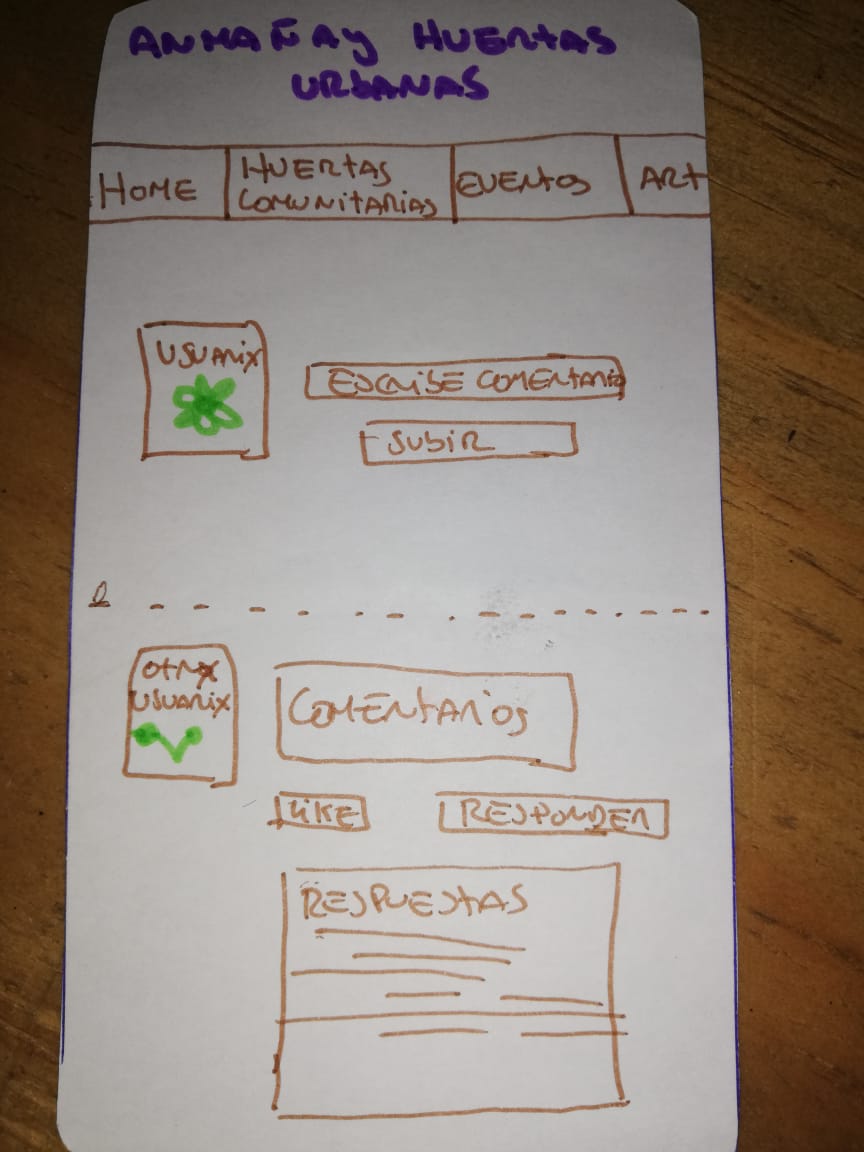 ANMAÑAy HUERtAS
URbANAS
HOME
HUERtAS
COMUNItARIAS
EVENtOS
ARt
USUARIX
ESCRIbE COMENtARIO
SUbIR
OtRX
USUARIX
COMENtARIOS
LIKE
RESPONDER
RESPUEStAS